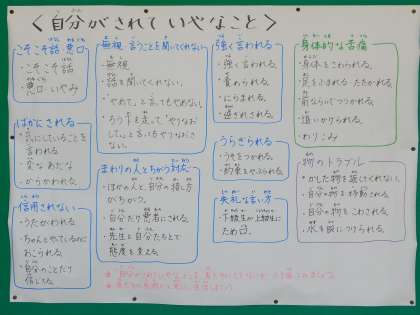 ＜自分がされていやなこと＞
こそこそ話 悪口
・こそこそ話
・悪口・いやみ
ばかにされる
・気にしていることを
言われる
・変なあだな
・からかわれる
信用されない
・うたがわれる
・ちゃんとやっているのに
おこられる
信じてる
無視 言うことを聞いてくれない
・無視
・話を聞いてくれない。
・「やめて」と言ってもやめない。
まわりの人とちがう対応
・ほかの人と自分の接し方
がちがう。
・自分だけ悪者にされる。
・先生と自分たちとで
態度を変える。
強く言われる
・強く言われる。
・責められる。
・にらまれる。
うらぎられる
・うそをつかれる。
・約束をやぶられる。
失礼な言い方
・下級生が上級生に
ため口
身体的な苦痛
・身体をさわられる。
・足をふまれる・たたかれる
・追いかけられる。
・わりこみ
物のトラブル
・かした物を返してくれない。
・自分の物を移動される。
・自分の物をこわされる。
・水を服につけられる。